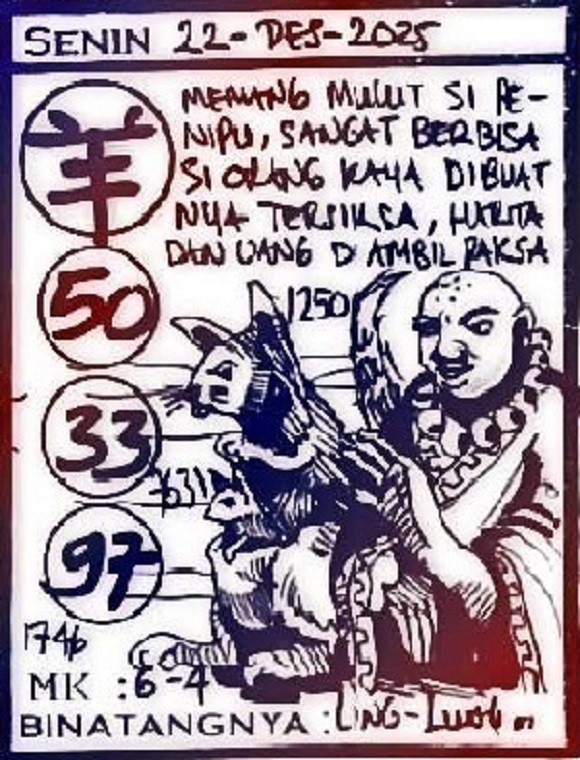 SENIN 22-DES-2025
羊
MENANG MULUT SI PE-
NIPU, SANGAT BERBISA
SI ORANG KAYA DIBUAT
NYA TERSIKSA, HARTA
DAN UANG D AMBIL PAKSA
50
1250
33
1631
97
1746
MK : 6-4
BINATANGNYA : LING-